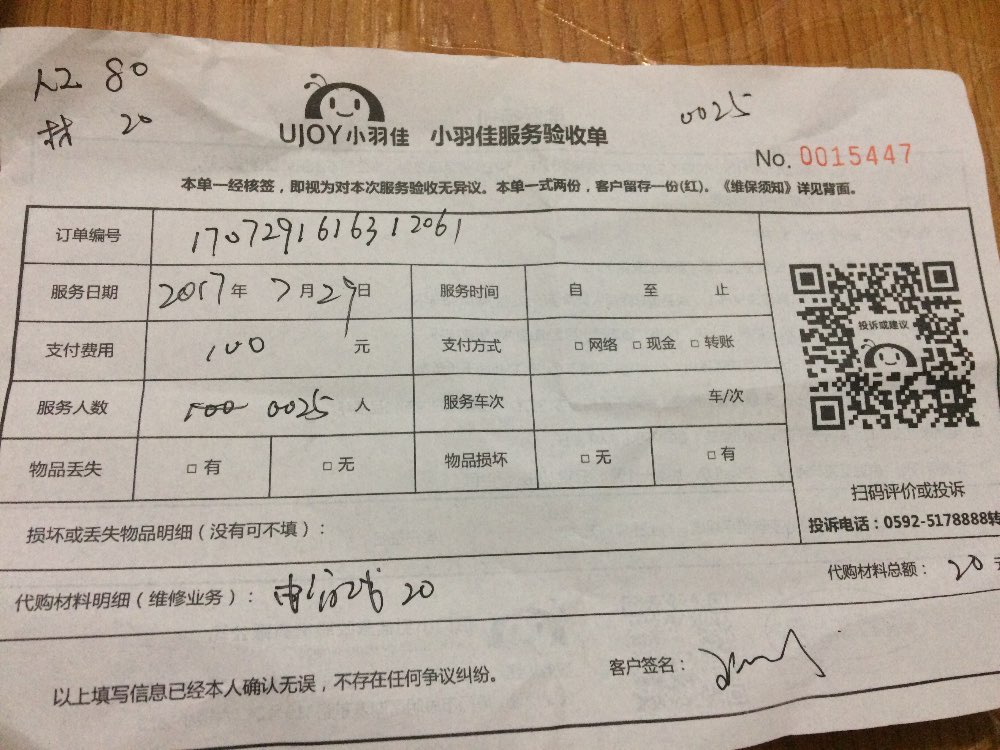 人工 80
材 20
UJOY小羽佳 小羽佳服务验收单
0025
No. 0015447
本单一经核签，即视为对本次服务验收无异议。本单一式两份，客户留存一份(红)。《维保须知》详见背面。
订单编号 1707291616312061
服务日期 2017年 7月29日 服务时间 自 至 止
支付费用 100 元 支付方式 □ 网络 □ 现金 □ 转账
服务人数 100 0025 人 服务车次 车/次
物品丢失 □ 有 □ 无 物品损坏 □ 无 □ 有
投诉或建议
扫码评价或投诉
投诉电话：0592-5178888转
损坏或丢失物品明细（没有可不填）：
代购材料明细（维修业务）： 20
代购材料总额： 20 元
以上填写信息已经本人确认无误，不存在任何争议纠纷。
客户签名：